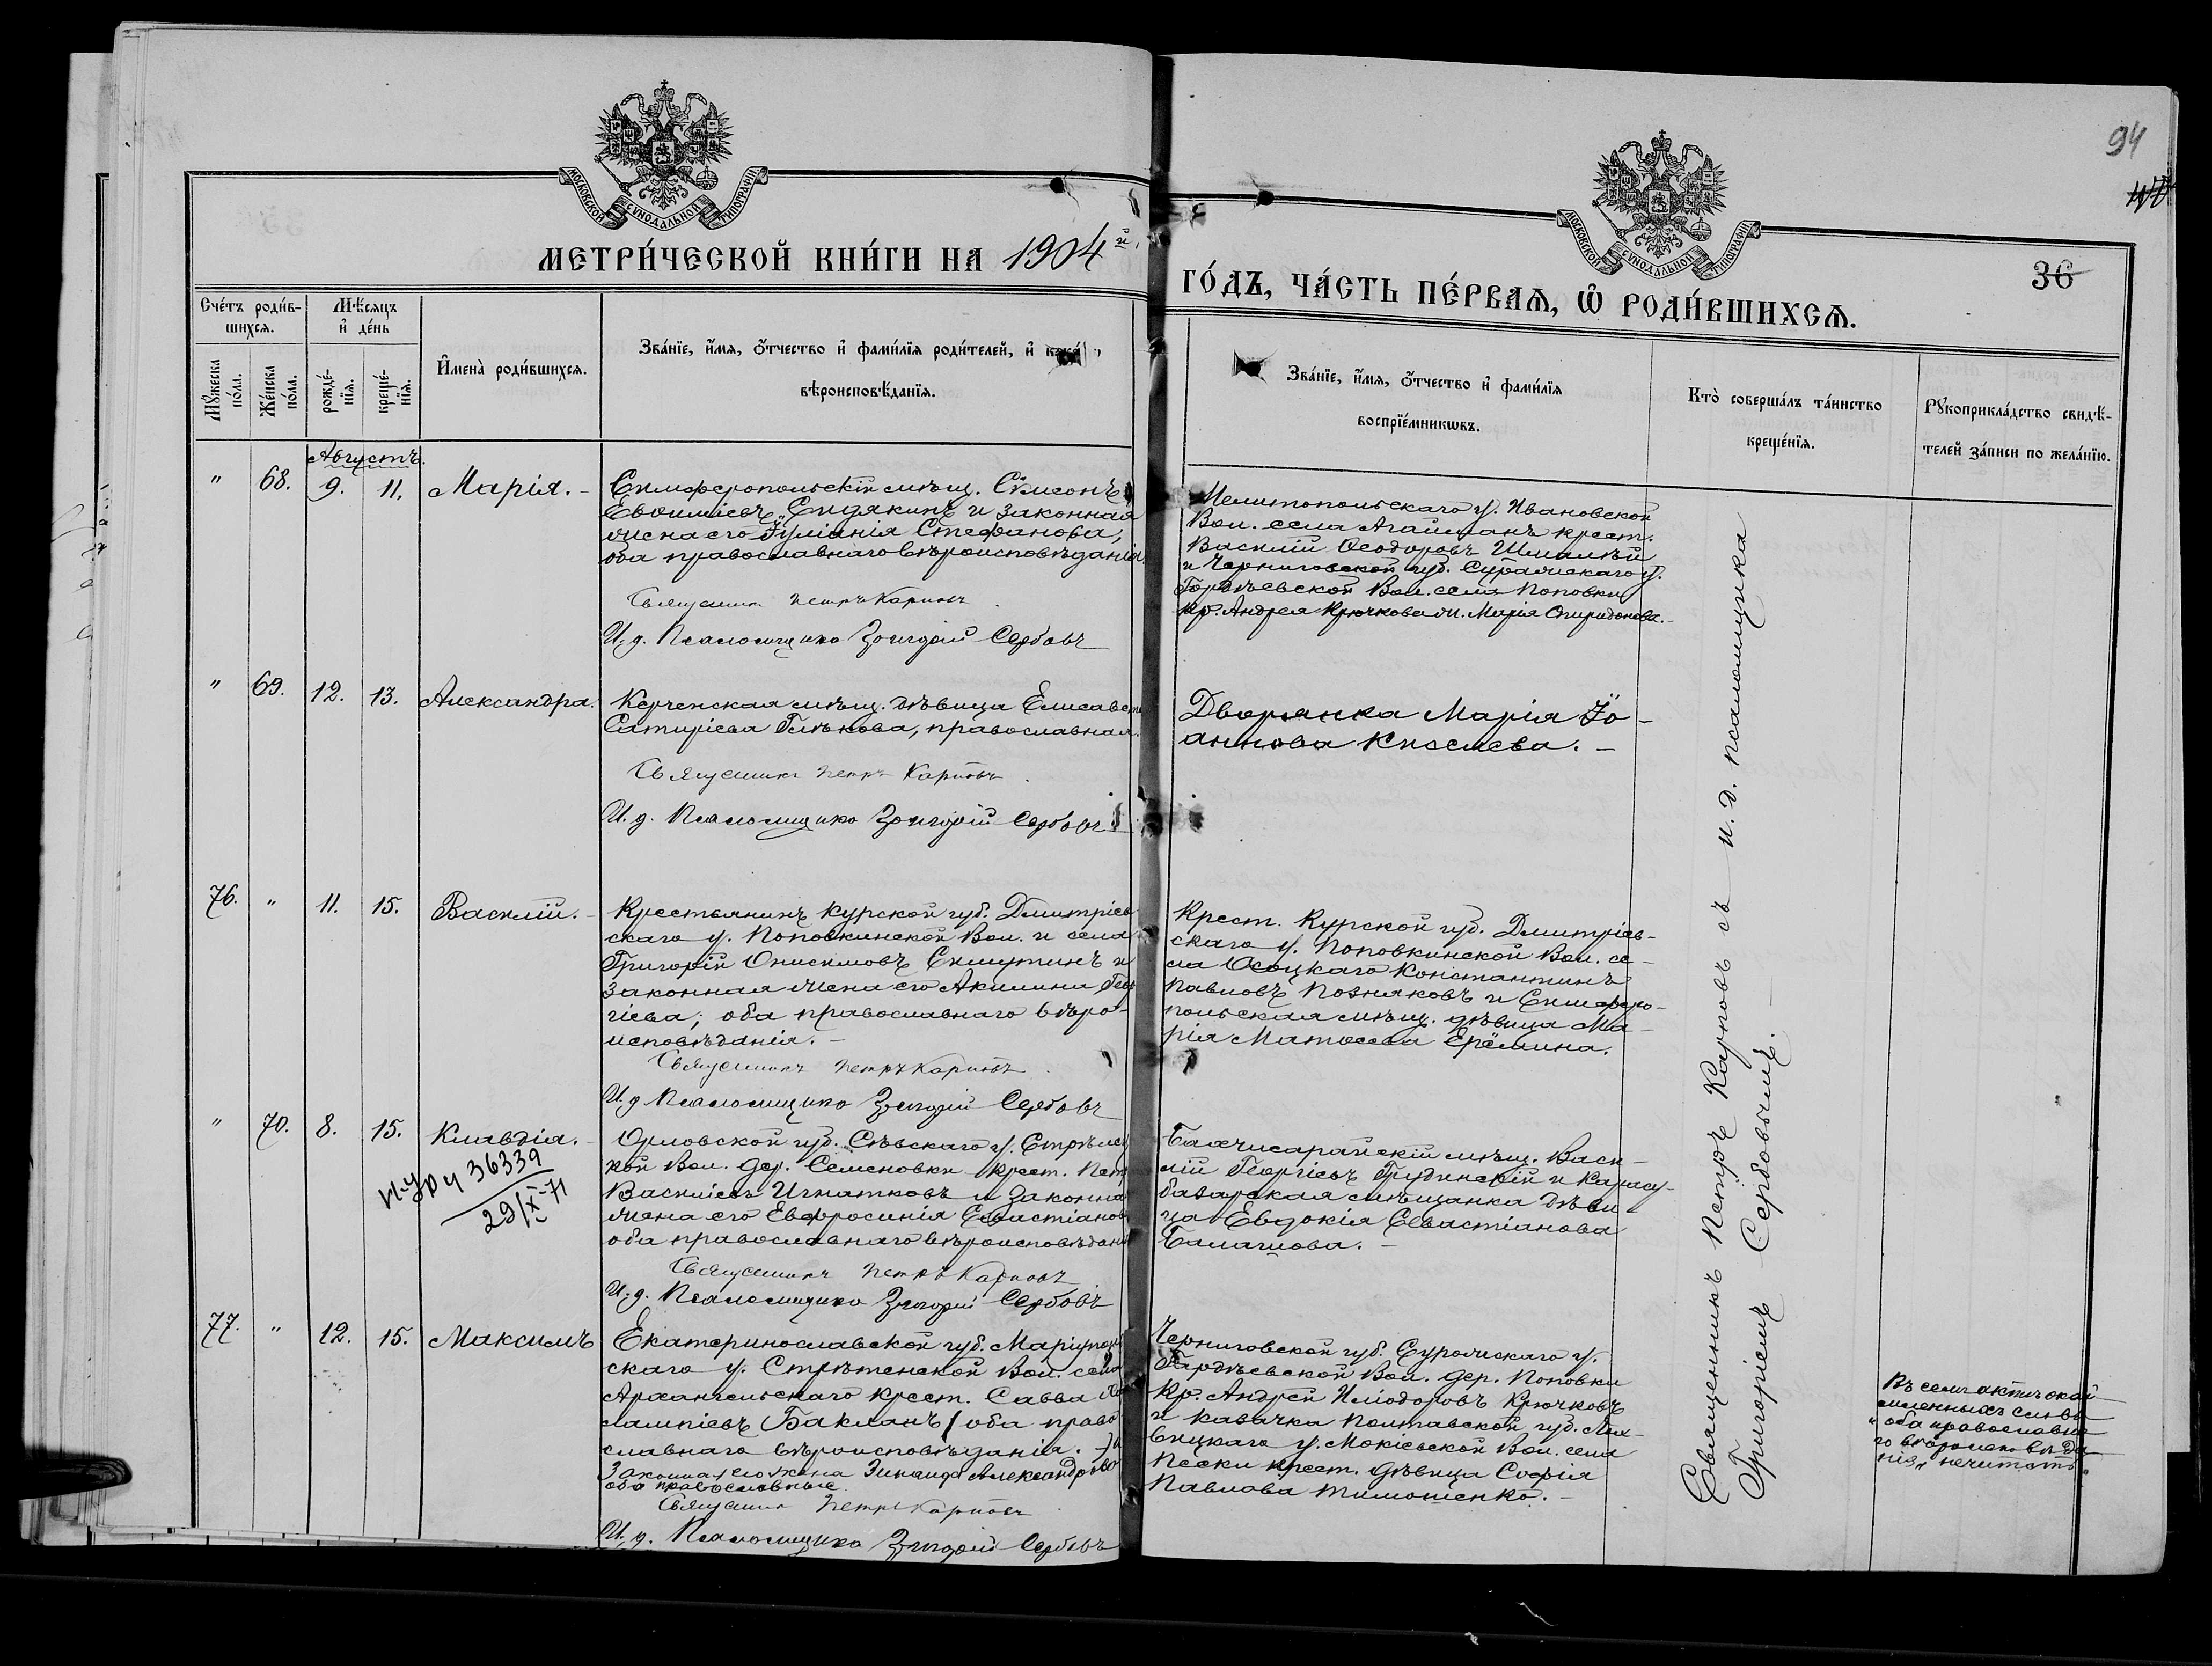 94
36
МОСКОВСКОЙ СѴНОДАЛЬНОЙ ТИПОГРАФІИ
МЕТРИ́ЧЕСКОЙ КНИ́ГИ НА 1904й
МОСКОВСКОЙ СѴНОДАЛЬНОЙ ТИПОГРАФІИ
ГО́ДЪ, ЧА́СТЬ ПЕ́РВАЯ, Ѡ РОДИ́ВШИХСЯ.
Сче́тъ роди́в-
шихся.
Мꙋжеска по́ла.
Же́нска по́ла.
Мѣ́сяцъ
и҆ де́нь
рожде́-
нїя.
креще́-
нїя.
И҆мена̀ роди́вшихся.
Зва́нїе, и҆́мя, ѻ҆́тчество и҆ фами́лїя роди́телей, и҆
вѣроисповѣ́данїя.
Зва́нїе, и҆́мя, ѻ҆́тчество и҆ фами́лїя
воспрїе́мникѡвъ.
Кто̀ соверша́лъ та́инство
креще́нїя.
Рꙋкоприкла́дство свидѣ́-
телей за́писи по жела́нїю.
Августъ.
" 68. 9. 11. Марія. -
Симферопольскій мѣщ. Симеонъ
Евѳиміевъ Сидякинъ и законная
жена его Іуліанія Стефанова,
оба православнаго вѣроисповѣданія
Священникъ Петръ Карповъ
И. д. Псаломщика Григорій Сербовъ
Мелитопольскаго у. Ивановской
Вол. села Агайманъ крест.
Василій Ѳеодоровъ
и Черниговской губ. Суражскаго у.
Гордѣевской Вол. села Поповки
кр. Андрея Крючкова ж. Марія Спиридонова. -
" 69. 12. 13. Александра.
Керченская мѣщ. дѣвица Елисавета
Сатирієва Глѣкова, православная.
Священникъ Петръ Карповъ
И. д. Псаломщика Григорій Сербовъ
Дворянка Марія Іо-
аннова Киселева. -
76. " 11. 15. Василій. -
Крестьянинъ Курской губ. Дмитріев-
скаго у. Поповкинской Вол. и села
Григорій Онисимовъ Сишутинъ и
законная жена его Акилина Геор
гіева; оба православнаго вѣро-
исповѣданія. -
Священникъ Петръ Карповъ
И. д. Псаломщика Григорій Сербовъ
Крест. Курской губ. Дмитріев-
скаго у. Поповкинской Вол. се-
ла Осоцкаго Константинъ
Павловъ Позняковъ и Симферо-
польская мѣщ. дѣвица Ма-
рія Матѳеева Ерёмина.
" 70. 8. 15. Клавдія. -
36339
29/X-71
Орловской губ. Сѣвскаго у. Стрѣлец
кой Вол. дер. Семеновки крест. Петр
Василіевъ Игнатковъ и законная
жена его Евфросинія Севастіанова
оба православнаго вѣроисповѣданія
Священникъ Петръ Карповъ
И. д. Псаломщика Григорій Сербовъ
Бахчисарайскій мѣщ. Васи-
лій Георгіевъ Грудинскій и Карасу-
базарская мѣщанка дѣви-
ца Евдокія Севастіанова
Балашова. -
77. " 12. 15. Максимъ
Екатеринославской губ. Маріуполь
скаго у. Стрѣтенской Вол. села
Архангельскаго крест. Савва
лампіевъ Бакланъ / оба право
славнаго вѣроисповѣданія. - / и
Законная его жена Зинаида Александрова
оба православные.
Священникъ Петръ Карповъ
И. д. Псаломщика Григорій Сербовъ
Черниговской губ. Суражскаго у.
Гордѣевской Вол. дер. Поповки
Кр. Андрей Иліодоровъ Крючковъ
и казачка Полтавской губ. Лох-
вицкаго у. Мокіевской Вол. села
Пески крест. дѣвица Софія
Павлова Тимошенко. -
Священникъ Петръ Карповъ съ и. д. псаломщика
Григоріемъ Сербовымъ.
Въ семъ актѣ
слова
" оба православна
го вѣроисповѣда
нія" нечитать.